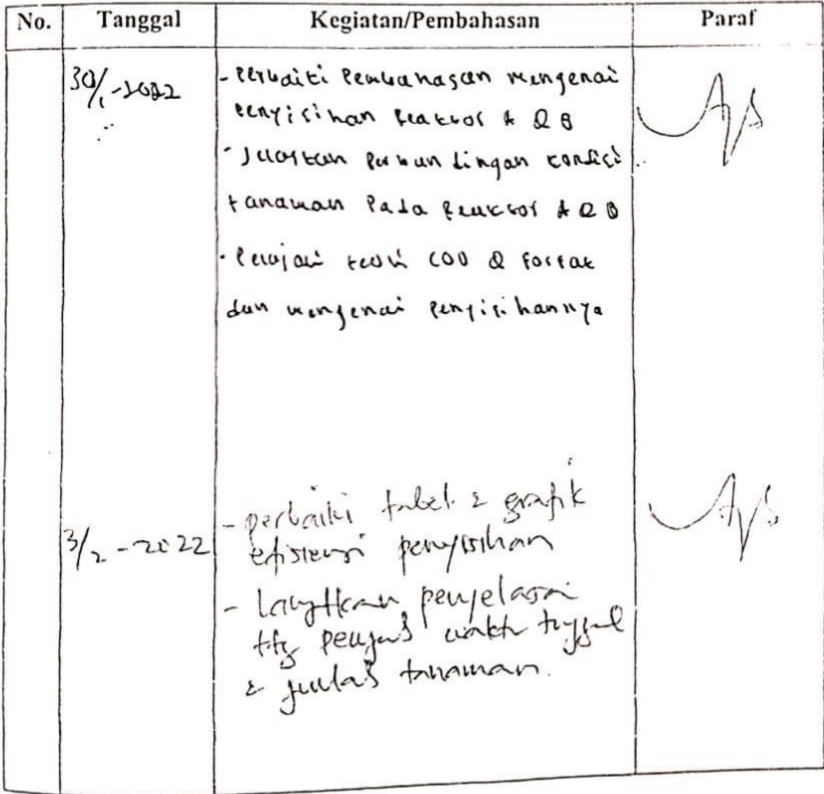 No. Tanggal Kegiatan/Pembahasan Paraf
30/1-2022 - Perbaiki Pembahasan mengenai
penyisihan Reaktor A & B
- Jelaskan Perbandingan kondisi
tanaman Pada Reaktor A & B
- Pelajari teori COD & Fosfat
dan mengenai Penyisihannya
3/2-2022 - perbaiki tabel & grafik
efisiensi penyisihan
- Lanjutkan penjelasan
ttg pengaruh waktu tinggal
& jumlah tanaman.